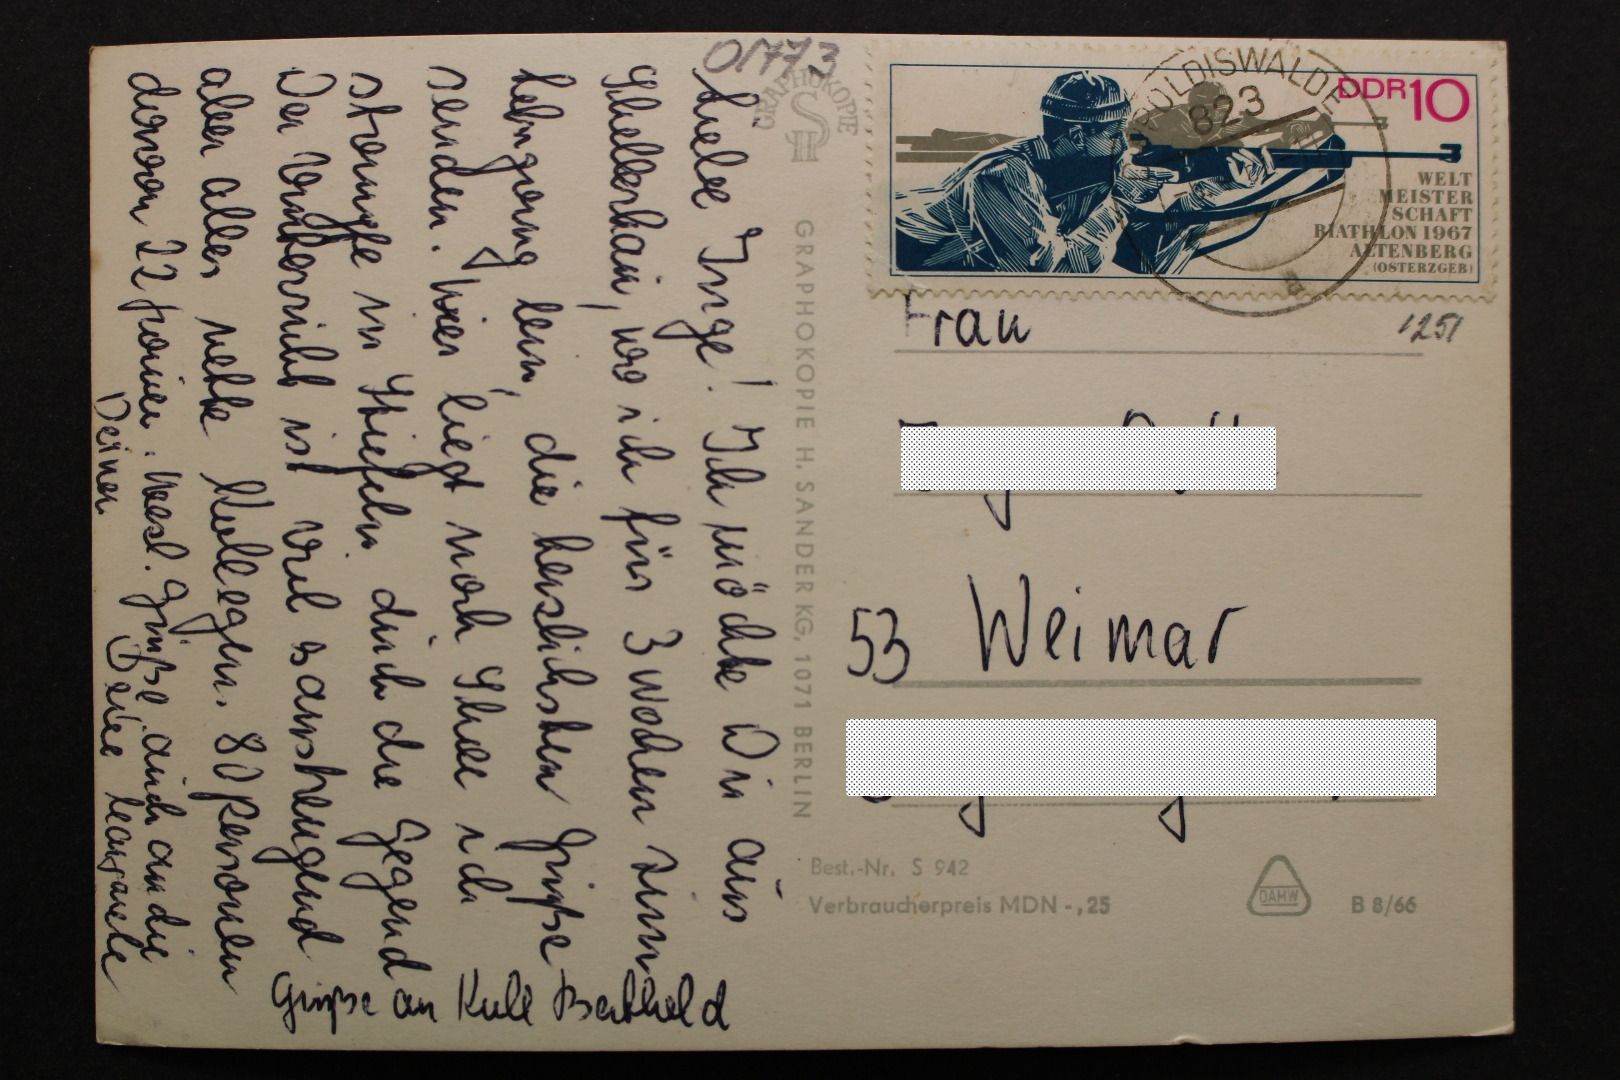 Liebe Inge! Ich möchte Dir aus
Schellerhau, wo ich für 3 Wochen zum
Lehrgang bin, die herzlichsten Grüße
senden. Hier liegt noch Schnee ich
stampfe in Stiefeln durch die Gegend
Der Unterricht ist viel u anstrengend
aber alles nette Kollegen. 80 Personen
davon 22 Frauen. Herzl. Grüße auch an die
Deinen
Deine
Grüße an Koll Berthold
01773
GRAPHOKOPIE
H S
GRAPHOKOPIE H. SANDER KG, 1071 BERLIN
DDR 10
WELT
MEISTER
SCHAFT
BIATHLON 1967
ALTENBERG
(OSTERZGEB)
POLDISWALDE
823
a
1251
Frau
53 Weimar
Best.-Nr. S 942
Verbraucherpreis MDN -,25
DAMW
B 8/66